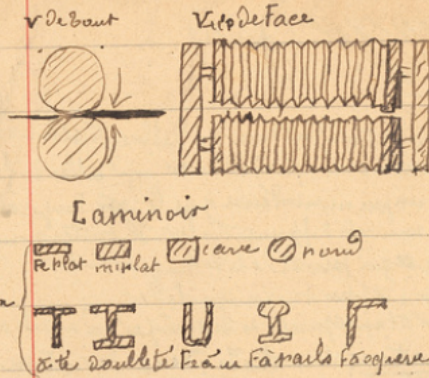 v de bout Vue de Face
Laminoir
fe plat mi plat carré rond
à té double té F à u F à rails F équerre